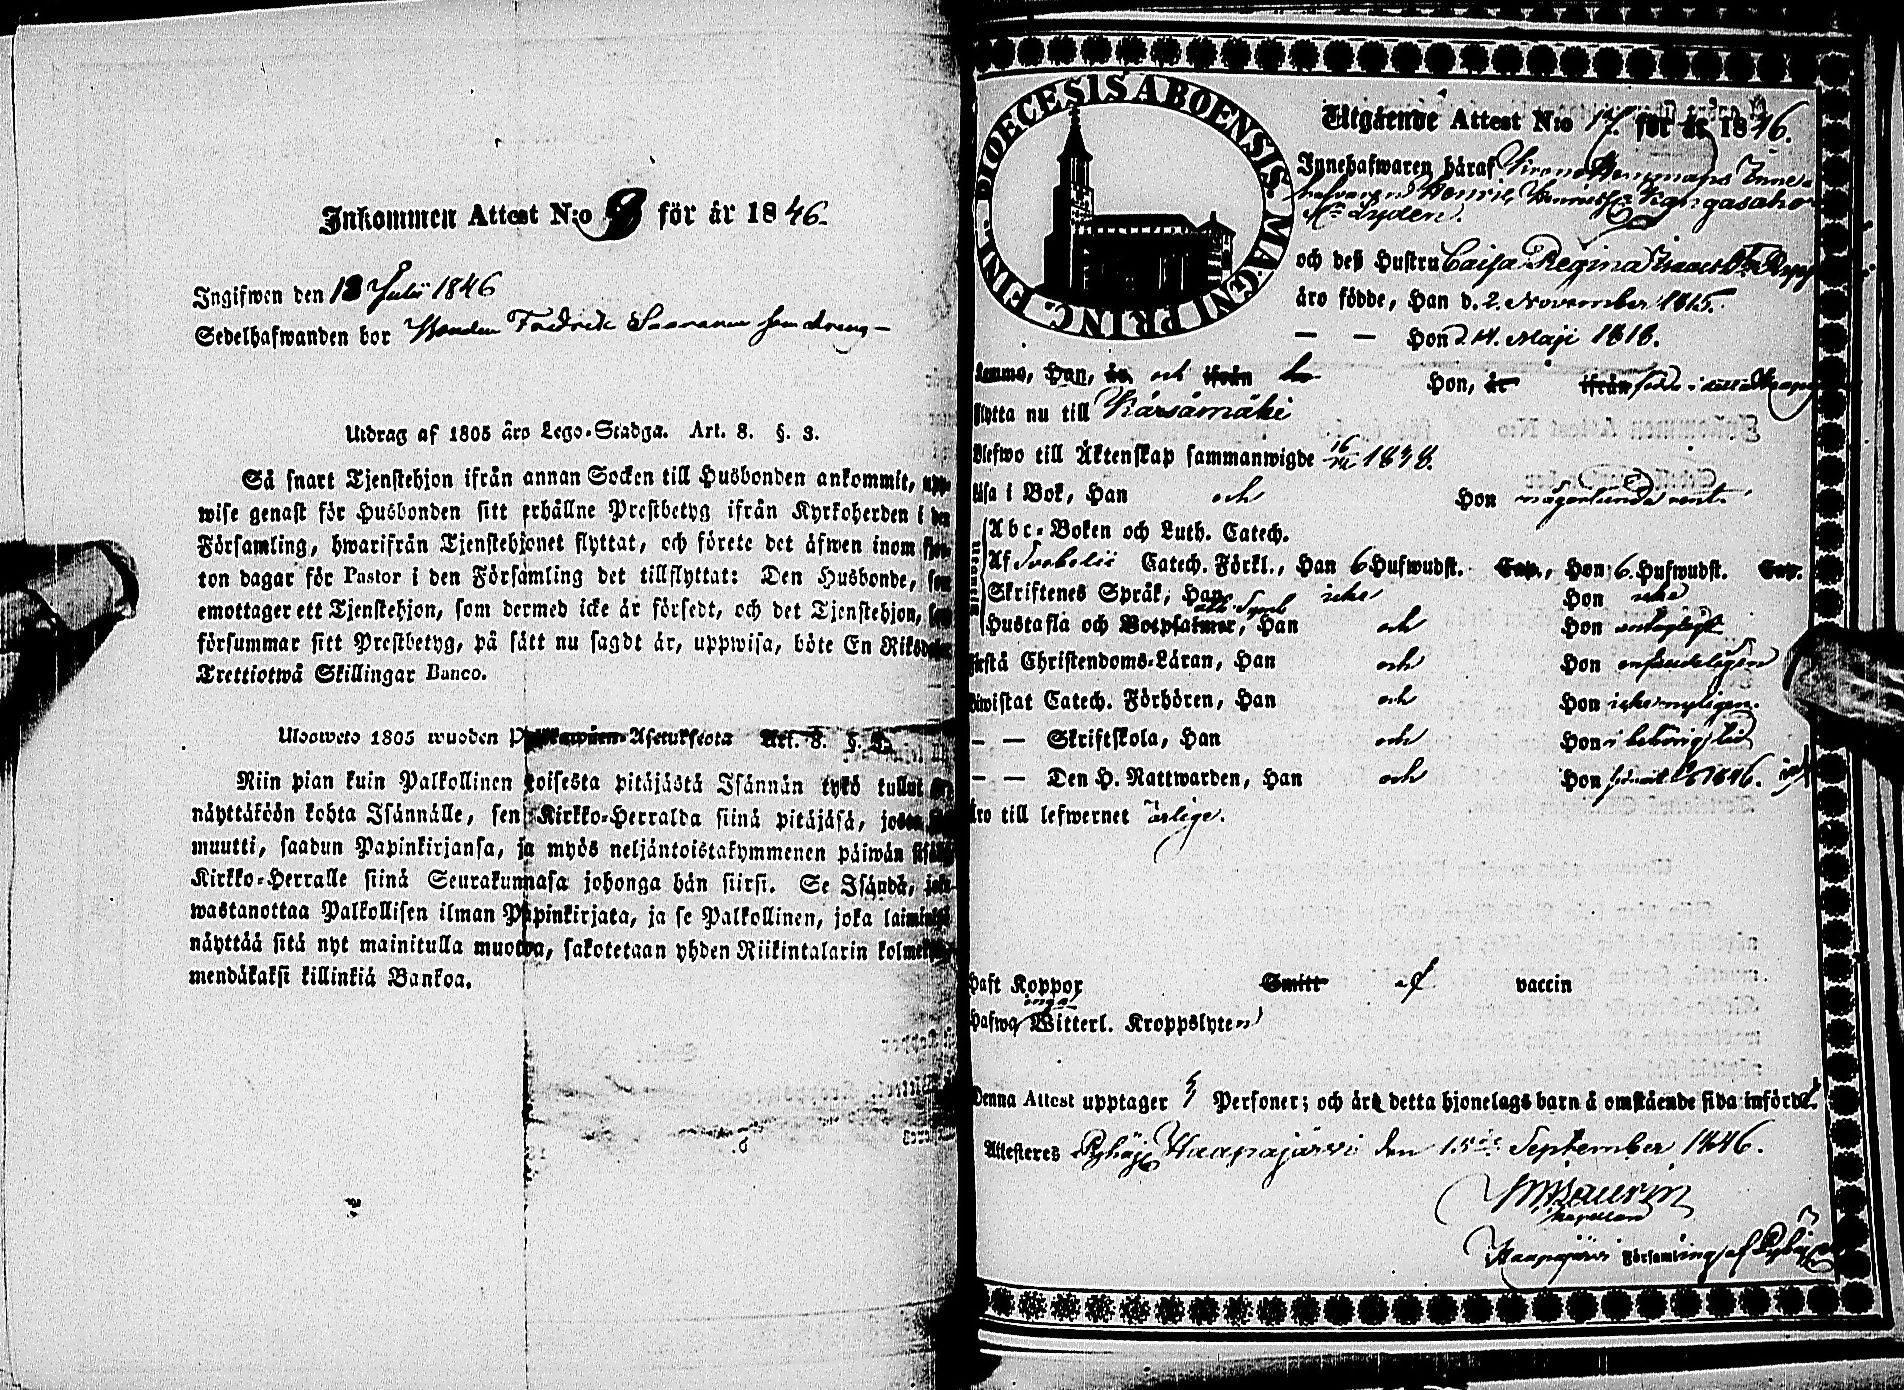 Inkommen Attest N:o 9 för år 1846.
Ingifwen den 13 Julii 1846
Sedelhafwanden bor Fredrik som dreng
Utdrag af 1805 års Lego-Stadga. Art. 8. §. 3.
Så snart Tjenstehjon ifrån annan Socken till Husbonden ankommit, upp-
wise genast för Husbonden sitt erhållne Prestbetyg ifrån Kyrkoherden i den
Församling, hwarifrån Tjenstehjonet flyttat, och förete det äfwen inom fjor-
ton dagar för Pastor i den Församling det tillflyttat: Den Husbonde, som
emottager ett Tjenstehjon, som dermed icke är försedt, och det Tjenstehjon, som
försummar sitt Prestbetyg, på sätt nu sagdt är, uppwisa, böte En Riksdaler
Trettiotwå Skillingar Banco.
Ulosweto 1805 wuoden Palkawäen-Asetuksesta Art. 8. §. 3.
Niin pian kuin Palkollinen toisesta pitäjästä Isännän tykö tullut on
näyttäköön kohta Isännälle, sen Kirkko-Herralda siinä pitäjäsä, josta
muutti, saadun Papinkirjansa, ja myös neljäntoistakymmenen päiwän sisällä
Kirkko-Herralle siinä Seurakunnasa johonga hän siirsi. Se Isändä, joka
wastanottaa Palkollisen ilman Papinkirjata, ja se Palkollinen, joka laiminlyö
näyttää sitä nyt mainitulla muotoa, sakotetaan yhden Riikintalarin kolmekym-
mendäkaksi killinkiä Bankoa.
DIOECESIS ABOENSIS. MAGNI PRINC. FINL.
Utgående Attest N:o 17. för år 1846.
Innehafwaren häraf Krono Hemmans Inne-
hafvaren Henric Henricss. Kangasaho
Lyden.
och deß Hustru Caisa Regina Isaacs Dr
äro födde, Han d. 2 November 1815.
— — Hon d. 14. Maji 1818.
komma, Han, är och ifrån Hon, är ifrån
flytta nu till Kärsämäki
Blefwo till Äktenskap sammanwigde 1838.
Läsa i Bok, Han och Hon någorlunda rent
Utantill
Abc-Boken och Luth. Catech.
Af Svebelii Catech. Förkl., Han 6 Hufwudst. Cap., Hon 6. Hufwudst. Cap.
Skriftenes Språk, Han icke Hon icke
Ath. Symb
Hustafla och Botpsalmer, Han och Hon
Förstå Christendoms-Läran, Han och Hon enfaldeligen
Biwistat Catech. Förhören, Han och Hon icke nyligen.
— — Skriftskola, Han och Hon i behörig tid
— — Den H. Nattwarden, Han och Hon 1846.
Äro till lefwernet ärlige.
Haft Koppor Smitt af vaccin
inga
Hafwa Witterl. Kroppslyten
Denna Attest upptager Personer; och äro detta hjonelags barn å omstående sida införde.
Attesteres Pyhäj. Haapajärvi den 15de September 1846.
Kapellan
Haapajärvi Församling af Pyhäj.